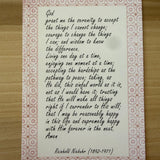 God
grant me the serenity to accept
the things I cannot change;
courage to change the things
I can; and wisdom to know
the difference.
Living one day at a time,
enjoying one moment at a time;
accepting the hardships as the
pathway to peace; taking, as
He did, this sinful world as it
is, not as I would have it; trusting
that He will make all things
right if I surrender to His will;
that I may be reasonably happy
in this life and supremely happy
with Him forever in the next.
Amen
Reinhold Niebuhr (1892-1971)